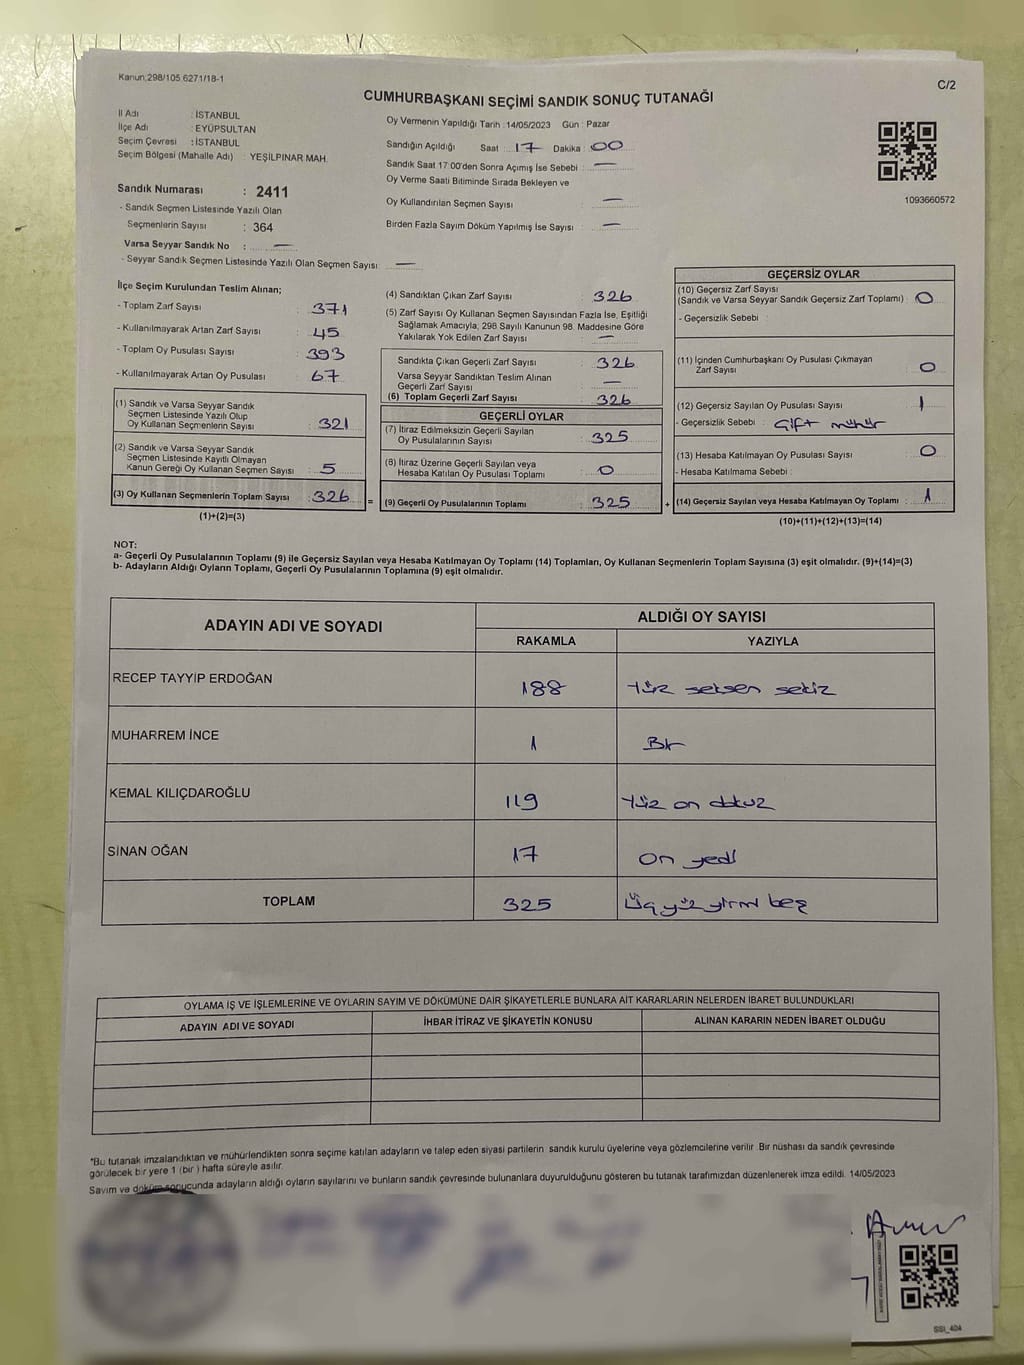 Kanun,298/105 6271/18-1
C/2
CUMHURBAŞKANI SEÇİMİ SANDIK SONUÇ TUTANAĞI
İl Adı : İSTANBUL
İlçe Adı : EYÜPSULTAN
Seçim Çevresi : İSTANBUL
Seçim Bölgesi (Mahalle Adı) : YEŞİLPINAR MAH.
Sandık Numarası : 2411
- Sandık Seçmen Listesinde Yazılı Olan
Seçmenlerin Sayısı : 364
Varsa Seyyar Sandık No : —
- Seyyar Sandık Seçmen Listesinde Yazılı Olan Seçmen Sayısı : —
Oy Vermenin Yapıldığı Tarih : 14/05/2023 Gün : Pazar
Sandığın Açıldığı Saat : 17 Dakika : 00
Sandık Saat 17:00'den Sonra Açımış İse Sebebi : —
Oy Verme Saati Bitiminde Sırada Bekleyen ve
Oy Kullandırılan Seçmen Sayısı : —
Birden Fazla Sayım Döküm Yapılmış İse Sayısı : —
1093660572
İlçe Seçim Kurulundan Teslim Alınan;
- Toplam Zarf Sayısı : 371
- Kullanılmayarak Artan Zarf Sayısı : 45
- Toplam Oy Pusulası Sayısı : 393
- Kullanılmayarak Artan Oy Pusulası : 67
(1) Sandık ve Varsa Seyyar Sandık
Seçmen Listesinde Yazılı Olup
Oy Kullanan Seçmenlerin Sayısı : 321
(2) Sandık ve Varsa Seyyar Sandık
Seçmen Listesinde Kayıtlı Olmayan
Kanun Gereği Oy Kullanan Seçmen Sayısı : 5
(3) Oy Kullanan Seçmenlerin Toplam Sayısı : 326
(1)+(2)=(3)
(4) Sandıktan Çıkan Zarf Sayısı : 326
(5) Zarf Sayısı Oy Kullanan Seçmen Sayısından Fazla İse, Eşitliği
Sağlamak Amacıyla, 298 Sayılı Kanunun 98. Maddesine Göre
Yakılarak Yok Edilen Zarf Sayısı : —
Sandıkta Çıkan Geçerli Zarf Sayısı : 326
Varsa Seyyar Sandıktan Teslim Alınan
Geçerli Zarf Sayısı : —
(6) Toplam Geçerli Zarf Sayısı : 326
GEÇERLİ OYLAR
(7) İtiraz Edilmeksizin Geçerli Sayılan
Oy Pusulalarının Sayısı : 325
(8) İtiraz Üzerine Geçerli Sayılan veya
Hesaba Katılan Oy Pusulası Toplamı : 0
= (9) Geçerli Oy Pusulalarının Toplamı : 325 +
GEÇERSİZ OYLAR
(10) Geçersiz Zarf Sayısı
(Sandık ve Varsa Seyyar Sandık Geçersiz Zarf Toplamı) : 0
- Geçersizlik Sebebi :
(11) İçinden Cumhurbaşkanı Oy Pusulası Çıkmayan
Zarf Sayısı : 0
(12) Geçersiz Sayılan Oy Pusulası Sayısı : 1
- Geçersizlik Sebebi : Çift mühür
(13) Hesaba Katılmayan Oy Pusulası Sayısı : 0
- Hesaba Katılmama Sebebi :
(14) Geçersiz Sayılan veya Hesaba Katılmayan Oy Toplamı : 1
(10)+(11)+(12)+(13)=(14)
NOT:
a- Geçerli Oy Pusulalarının Toplamı (9) ile Geçersiz Sayılan veya Hesaba Katılmayan Oy Toplamı (14) Toplamları, Oy Kullanan Seçmenlerin Toplam Sayısına (3) eşit olmalıdır. (9)+(14)=(3)
b- Adayların Aldığı Oyların Toplamı, Geçerli Oy Pusulalarının Toplamına (9) eşit olmalıdır.
ADAYIN ADI VE SOYADI
ALDIĞI OY SAYISI
RAKAMLA YAZIYLA
RECEP TAYYİP ERDOĞAN 188 Yüz seksen sekiz
MUHARREM İNCE 1 Bir
KEMAL KILIÇDAROĞLU 119 Yüz on dokuz
SİNAN OĞAN 17 On yedi
TOPLAM 325 Üç yüz yirmi beş
OYLAMA İŞ VE İŞLEMLERİNE VE OYLARIN SAYIM VE DÖKÜMÜNE DAİR ŞİKAYETLERLE BUNLARA AİT KARARLARIN NELERDEN İBARET BULUNDUKLARI
ADAYIN ADI VE SOYADI İHBAR İTİRAZ VE ŞİKAYETİN KONUSU ALINAN KARARIN NEDEN İBARET OLDUĞU
*Bu tutanak imzalandıktan ve mühürlendikten sonra seçime katılan adayların ve talep eden siyasi partilerin sandık kurulu üyelerine veya gözlemcilerine verilir. Bir nüshası da sandık çevresinde
görülecek bir yere 1 (bir ) hafta süreyle asılır.
Sayım ve döküm sonucunda adayların aldığı oyların sayılarını ve bunların sandık çevresinde bulunanlara duyurulduğunu gösteren bu tutanak tarafımızdan düzenlenerek imza edildi. 14/05/2023
SSI_404